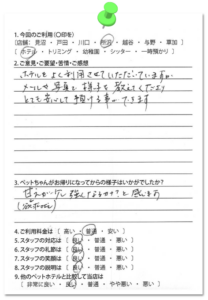 1.今回のご利用(〇印を)
(店舗) 見沼 ・ 戸田 ・ 川口 ・ 所沢 ・ 越谷 ・ 与野 ・ 草加 )
( ホテル ・ トリミング ・ 幼稚園 ・ シッター ・ 一時預かり )
2.ご意見・ご要望・苦情・ご感想
ホテルをよく利用させていただいていますが、
メールで写真と様子を教えてくださり
とても安心して預ける事ができます
3.ペットちゃんがお帰りになってからの様子はいかがでしたか?
甘えが少し強くなるかな?と感じます
4.ご利用料金は ( 高い ・ 普通 ・ 安い )
5.スタッフの対応は ( 良い ・ 普通 ・ 悪い )
6.スタッフの礼節は ( 良い ・ 普通 ・ 悪い )
7.スタッフの笑顔は ( 良い ・ 普通 ・ 悪い )
8.スタッフの説明は ( 良い ・ 普通 ・ 悪い )
9.他のペットホテルと比較して当店は
( 非常に良い ・ 良い ・ 普通 ・ やや悪い ・ 悪い )